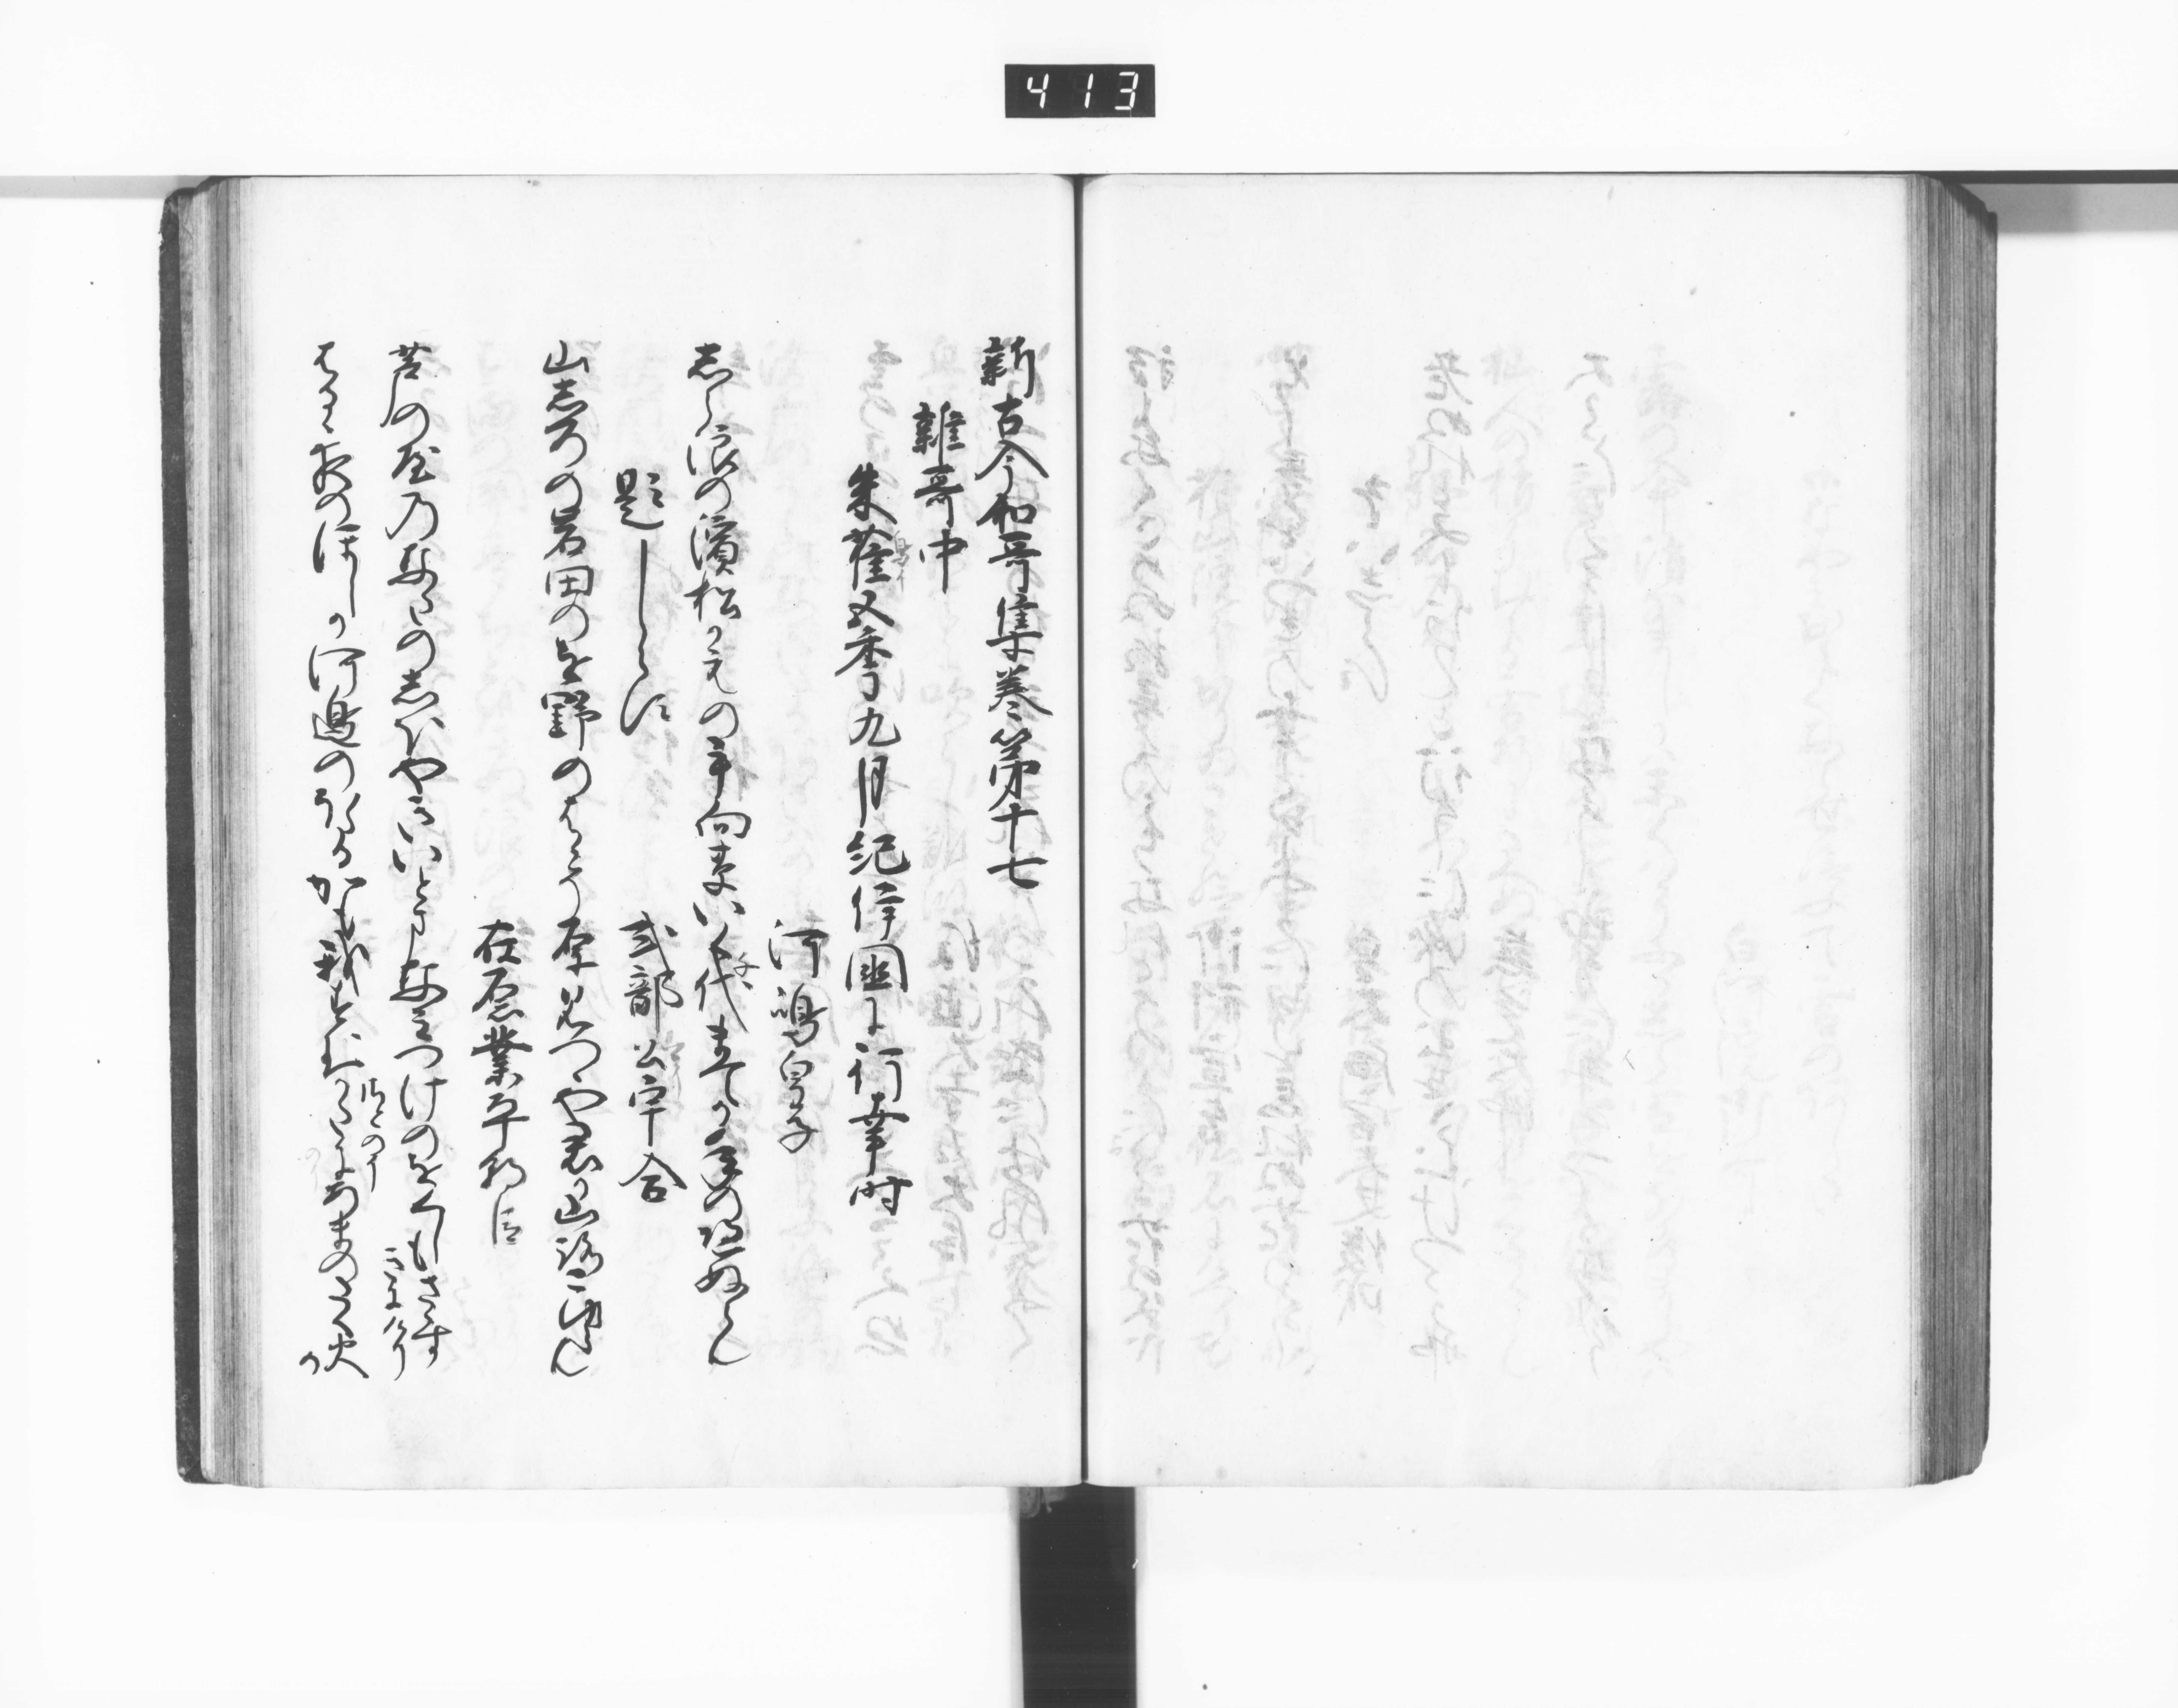 413
新古今和哥集巻第十七
雑哥中
朱雀五年九月紀伊国に行幸時
河嶋皇子
志ら浪の濱松かえの手向草いく代まてか年の過ぬらん
千
題しらす
式部卿宇合
山志ろの岩田のを野のはゝそ原見つゝや君か山路こゆらん
在原業平朝臣
芦の屋のなたの志ほやきいとまなみつけのをくしもさゝすきにけり
はるゝ夜のほしか河邊のほたるかも我すむかたのあまのたく火か